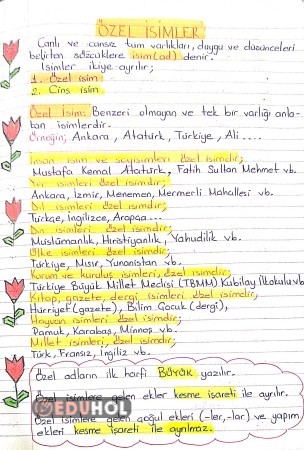 ÖZEL İSİMLER
Canlı ve cansız tüm varlıkları, duygu ve düşünceleri
belirten sözcüklere isim(ad) denir.
İsimler ikiye ayrılır;
1. Özel isim
2. Cins isim
Özel İsim: Benzeri olmayan ve tek bir varlığı anla-
tan isimlerdir.
Örneğin; Ankara, Atatürk, Türkiye, Ali ....
İnsan isim ve soyisimleri özel isimdir;
Mustafa Kemal Atatürk, Fatih Sultan Mehmet vb.
Yer isimleri özel isimdir;
Ankara, İzmir, Menemen, Mermerli Mahallesi vb.
Dil isimleri özel isimdir;
Türkçe, İngilizce, Arapça ...
Din isimleri özel isimdir;
Müslümanlık, Hıristiyanlık, Yahudilik vb.
Ülke isimleri özel isimdir;
Türkiye, Mısır, Yunanistan vb.
Kurum ve kuruluş isimleri, özel isimdir;
Türkiye Büyük Millet Meclisi (TBMM) Kubilay İlkokulu vb
Kitap, gazete, dergi isimleri özel isimdir;
Hürriyet (gazete), Bilim Çocuk (dergi),
Hayvan isimleri özel isimdir;
Pamuk, Karabaş, Minnoş vb.
Millet isimleri, özel isimdir;
Türk, Fransız, İngiliz vb.
Özel adların ilk harfi BÜYÜK yazılır.
Özel isimlere gelen ekler kesme işareti ile ayrılır.
Özel isimlere gelen çoğul ekleri (-ler,-lar) ve yapım
ekleri kesme işareti ile ayrılmaz.
EĞUHOL